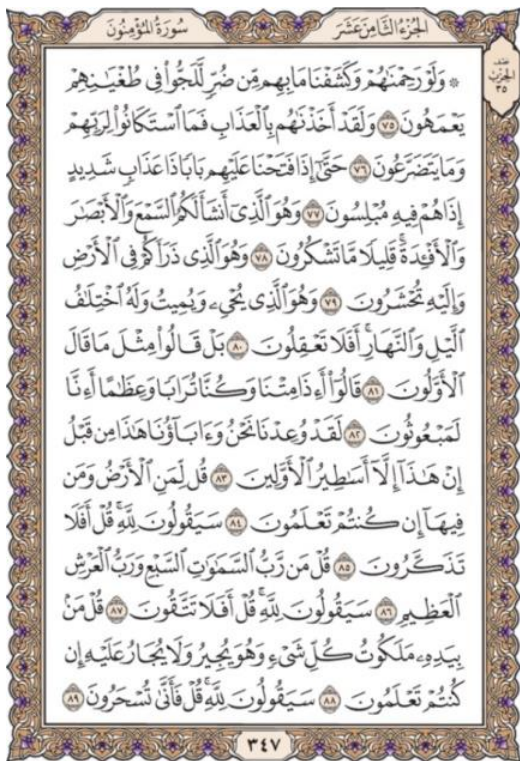 الجزء الثامن عشر
سورة المؤمنون
۞ وَلَوْ رَحِمْنَٰهُمْ وَكَشَفْنَا مَا بِهِم مِّن ضُرٍّ لَّلَجُّوا۟ فِى طُغْيَٰنِهِمْ
يَعْمَهُونَ ٧٥ وَلَقَدْ أَخَذْنَٰهُم بِٱلْعَذَابِ فَمَا ٱسْتَكَانُوا۟ لِرَبِّهِمْ
وَمَا يَتَضَرَّعُونَ ٧٦ حَتَّىٰٓ إِذَا فَتَحْنَا عَلَيْهِم بَابًا ذَا عَذَابٍ شَدِيدٍ
إِذَا هُمْ فِيهِ مُبْلِسُونَ ٧٧ وَهُوَ ٱلَّذِىٓ أَنشَأَ لَكُمُ ٱلسَّمْعَ وَٱلْأَبْصَٰرَ
وَٱلْأَفْـِٔدَةَ ۚ قَلِيلًا مَّا تَشْكُرُونَ ٧٨ وَهُوَ ٱلَّذِى ذَرَأَكُمْ فِى ٱلْأَرْضِ
وَإِلَيْهِ تُحْشَرُونَ ٧٩ وَهُوَ ٱلَّذِى يُحْىِۦ وَيُمِيتُ وَلَهُ ٱخْتِلَٰفُ
ٱلَّيْلِ وَٱلنَّهَارِ ۚ أَفَلَا تَعْقِلُونَ ٨٠ بَلْ قَالُوا۟ مِثْلَ مَا قَالَ
ٱلْأَوَّلُونَ ٨١ قَالُوٓا۟ أَءِذَا مِتْنَا وَكُنَّا تُرَابًا وَعِظَٰمًا أَءِنَّا
لَمَبْعُوثُونَ ٨٢ لَقَدْ وُعِدْنَا نَحْنُ وَءَابَآؤُنَا هَٰذَا مِن قَبْلُ
إِنْ هَٰذَآ إِلَّآ أَسَٰطِيرُ ٱلْأَوَّلِينَ ٨٣ قُل لِّمَنِ ٱلْأَرْضُ وَمَن
فِيهَآ إِن كُنتُمْ تَعْلَمُونَ ٨٤ سَيَقُولُونَ لِلَّهِ ۚ قُلْ أَفَلَا
تَذَكَّرُونَ ٨٥ قُلْ مَن رَّبُّ ٱلسَّمَٰوَٰتِ ٱلسَّبْعِ وَرَبُّ ٱلْعَرْشِ
ٱلْعَظِيمِ ٨٦ سَيَقُولُونَ لِلَّهِ ۚ قُلْ أَفَلَا تَتَّقُونَ ٨٧ قُلْ مَنۢ
بِيَدِهِۦ مَلَكُوتُ كُلِّ شَىْءٍ وَهُوَ يُجِيرُ وَلَا يُجَارُ عَلَيْهِ إِن
كُنتُمْ تَعْلَمُونَ ٨٨ سَيَقُولُونَ لِلَّهِ ۚ قُلْ فَأَنَّىٰ تُسْحَرُونَ ٨٩
نصف
الحزب
٣٥
٣٤٧